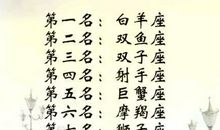 第一名：白羊座
第二名：双鱼座
第三名：双子座
第四名：射手座
第五名：巨蟹座
第六名：摩羯座